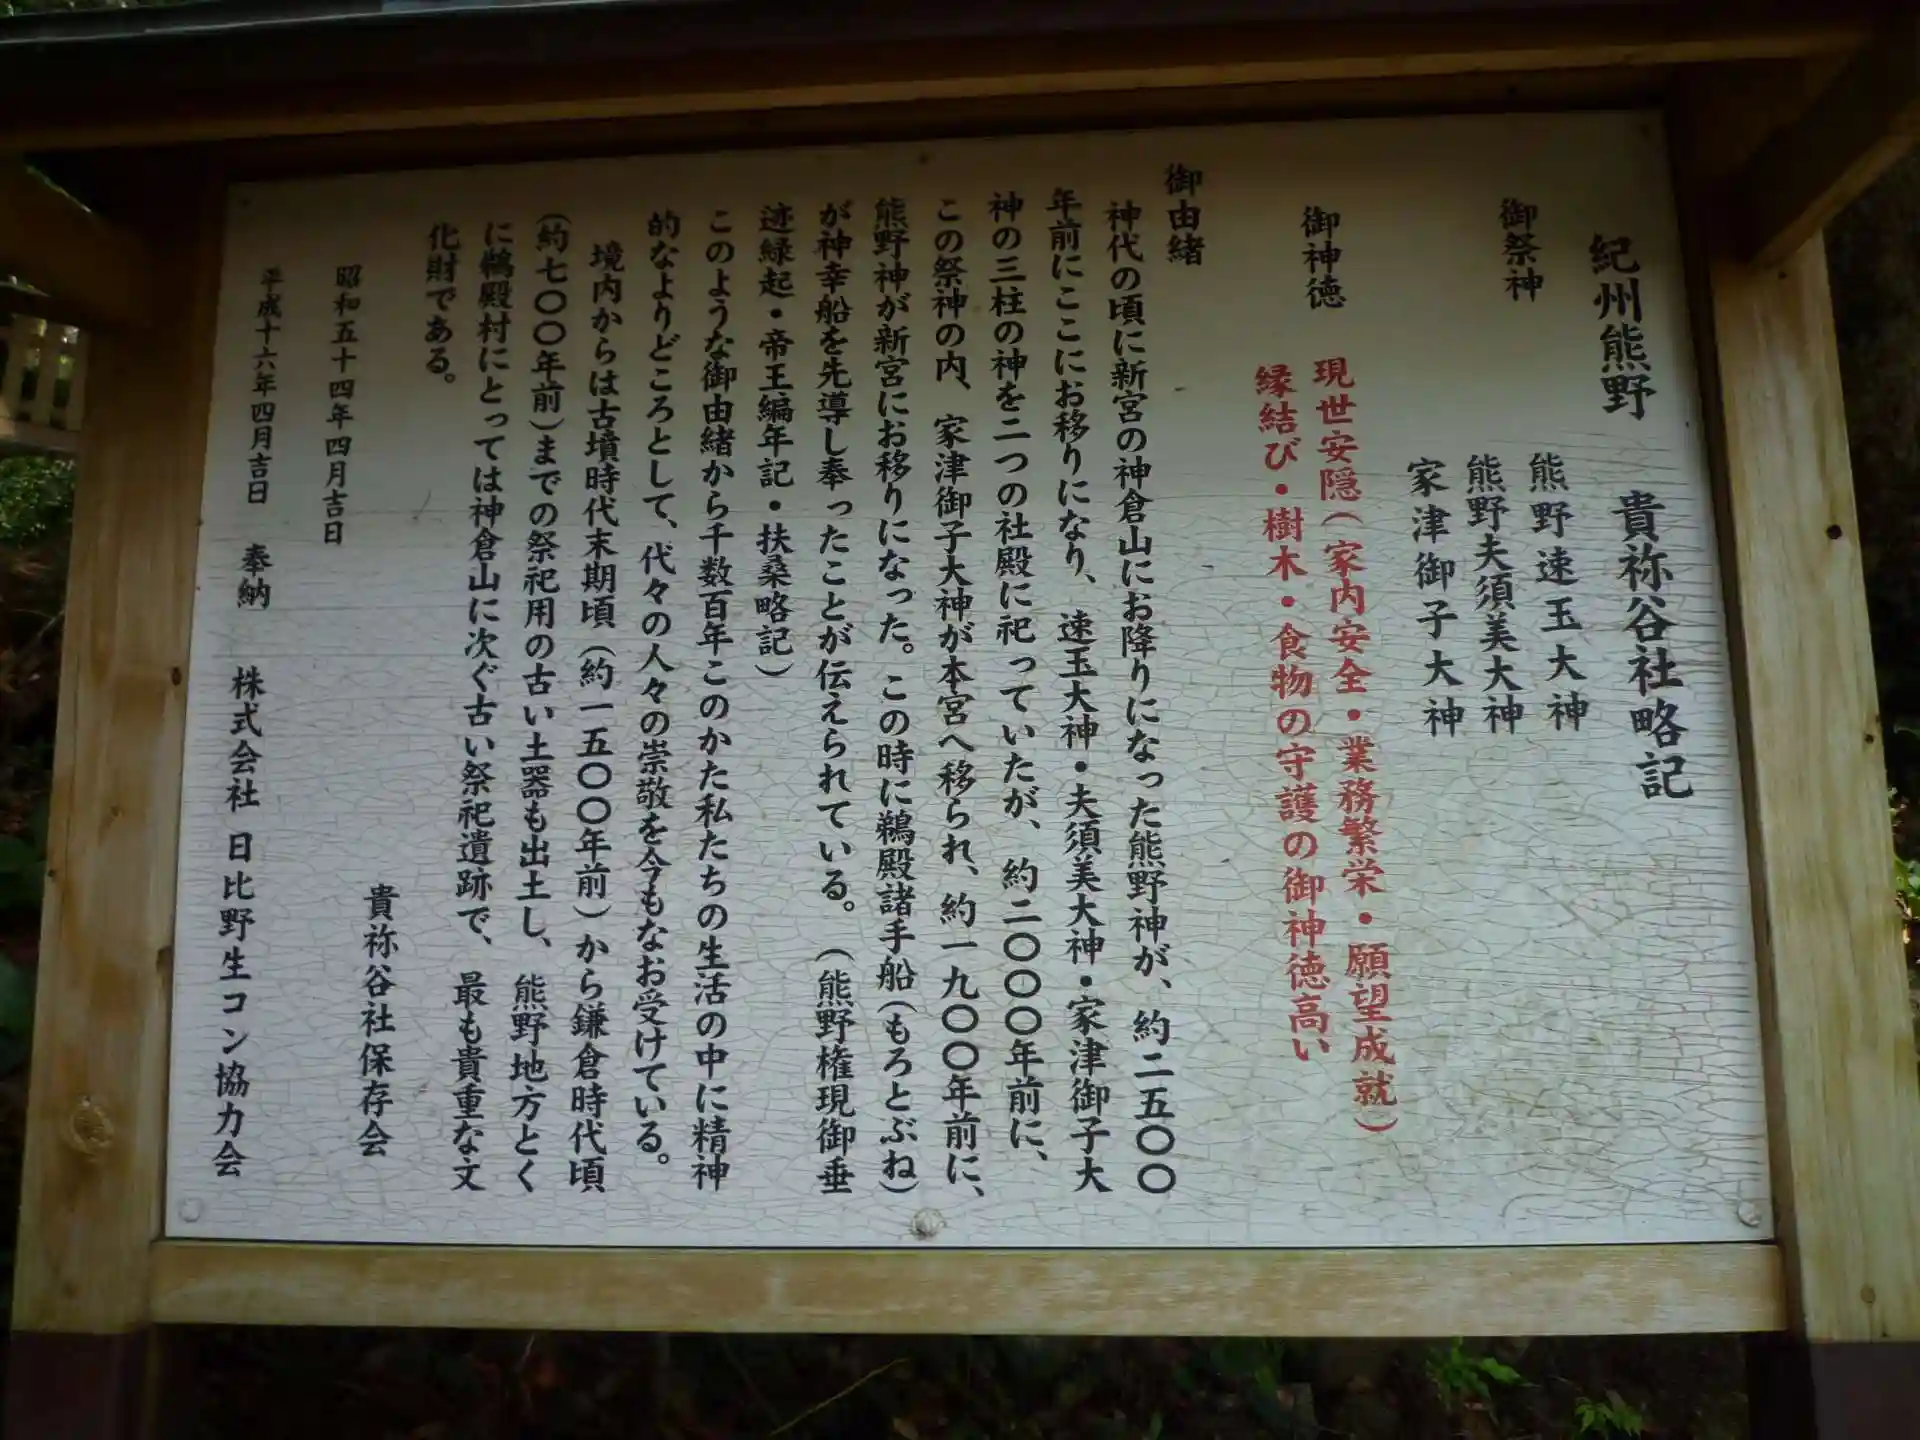 紀州熊野 貴祢谷社略記
御祭神
熊野速玉大神
熊野夫須美大神
家津御子大神
御神徳
現世安隠(家内安全・業務繁栄・願望成就)
縁結び・樹木・食物の守護の御神徳高い
御由緒
神代の頃に新宮の神倉山にお降りになった熊野神が、約二五〇〇
年前にここにお移りになり、速玉大神・夫須美大神・家津御子大
神の三柱の神を二つの社殿に祀っていたが、約二〇〇〇年前に、
この祭神の内、家津御子大神が本宮へ移られ、約一九〇〇年前に、
熊野神が新宮にお移りになった。この時に鵜殿諸手船(もろとぶね)
が神幸船を先導し奉ったことが伝えられている。(熊野権現御垂
迹縁起・帝王編年記・扶桑略記)
このような御由緒から千数百年このかた私たちの生活の中に精神
的なよりどころとして、代々の人々の崇敬を今もなお受けている。
境内からは古墳時代末期頃(約一五〇〇年前)から鎌倉時代頃
(約七〇〇年前)までの祭祀用の古い土器も出土し、熊野地方とく
に鵜殿村にとっては神倉山に次ぐ古い祭祀遺跡で、最も貴重な文
化財である。
貴祢谷社保存会
昭和五十四年四月吉日
平成十六年四月吉日 奉納 株式会社 日比野生コン協力会